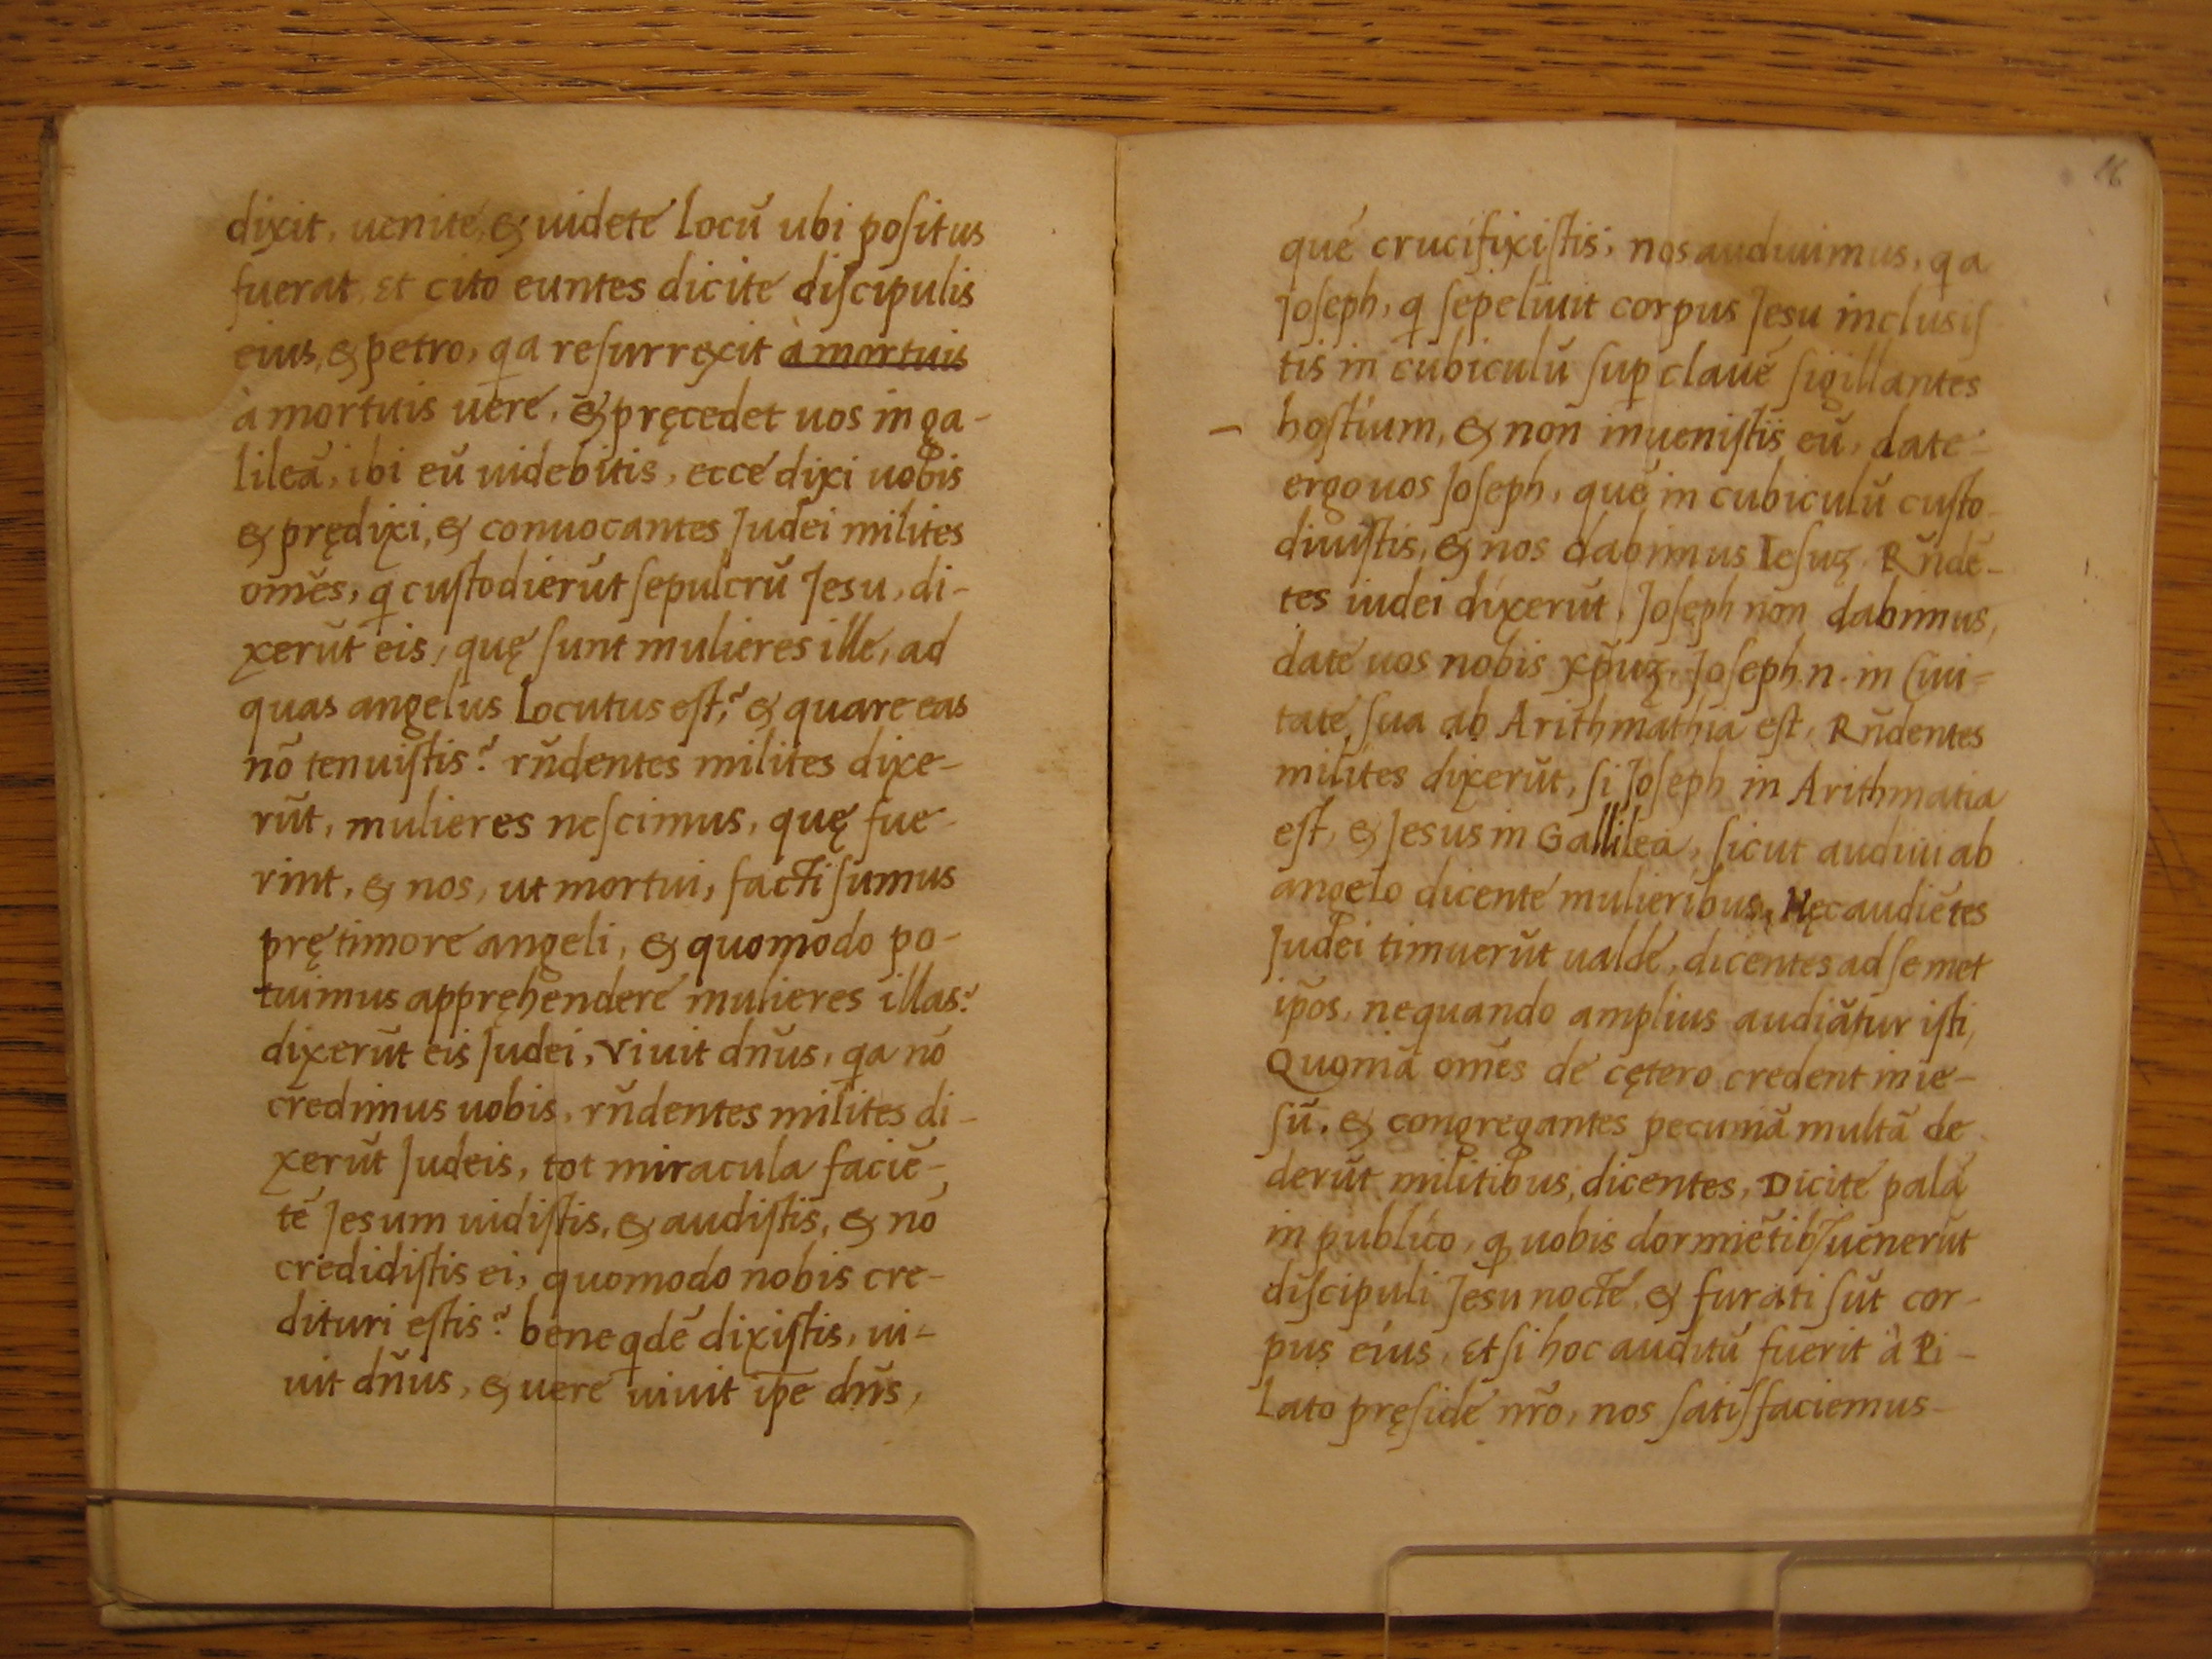 dixit, uenite, & uidete locū ubi poſitus
fuerat, Et cito euntes dicite diſcipulis
eius, & petro, qa reſurrexit à mortuis
à mortuis uere, & pręcedet uos in ga-
lileā, ibi eū uidebitis, ecce dixi uobis
& prędixi, & conuocantes Judei milites
om̄es, q cuſtodierūt ſepulcrū Jesu, di-
xerūt eis, quę ſunt mulieres ille, ad
quas angelus Locutus eſt? & quare eas
nō tenuiſtis? rn̄dentes milites dixe-
rūt, mulieres neſcimus, quę fue-
rint, & nos, ut mortui, facti ſumus
prę timore angeli, & quomodo po-
tuimus appręhendere mulieres illas?
dixerūt eis Judei, Viuit dn̄us, qa nō
credimus uobis, rn̄dentes milites di-
xerūt Judeis, tot miracula faciē-
tē Jesum uidiſtis, & audiſtis, & nō
credidiſtis ei, quomodo nobis cre-
dituri eſtis? bene qdē dixiſtis, ui-
uit dn̄us, & uere uiuit ip̄e dn̄s,
16
quē crucifixiſtis; nos audiuimus, qa
Joſeph, q ſepeliuit corpus Jesu incluſiſ
tis in cubiculū ſup clauē ſigillantes
hoſtium, & non inueniſtis eū, date
ergo uos Joſeph, quē in cubiculū cuſto
diuiſtis, & nos dabimus Ieſuꝫ. Rn̄dē-
tes iudei dixerūt, Joſeph non dabimus,
date uos nobis xp̄uꝫ, Joſeph .n. in Ciui-
tate ſua ab Arithmathia eſt, Rn̄dentes
milites dixerūt, ſi Joſeph in Arithmatia
eſt, & Jesus in Gallilea, ſicut audiui ab
angelo dicente mulieribus, Hęc audiētes
Judei timuerūt ualde, dicentes ad ſemet
ip̄os, nequando amplius audiātur iſti,
Quoniā om̄es de cętero credent in ie-
ſū, & congregantes pecuniā multā de
derūt militibus, dicentes, Dicite palā
in publico, q uobis dormiētibꝰ uenerūt
diſcipuli Jesu nocte, & furati ſūt cor-
pus eius, Et ſi hoc auditū fuerit à Pi-
lato pręſide nr̄o, nos ſatiſfaciemus